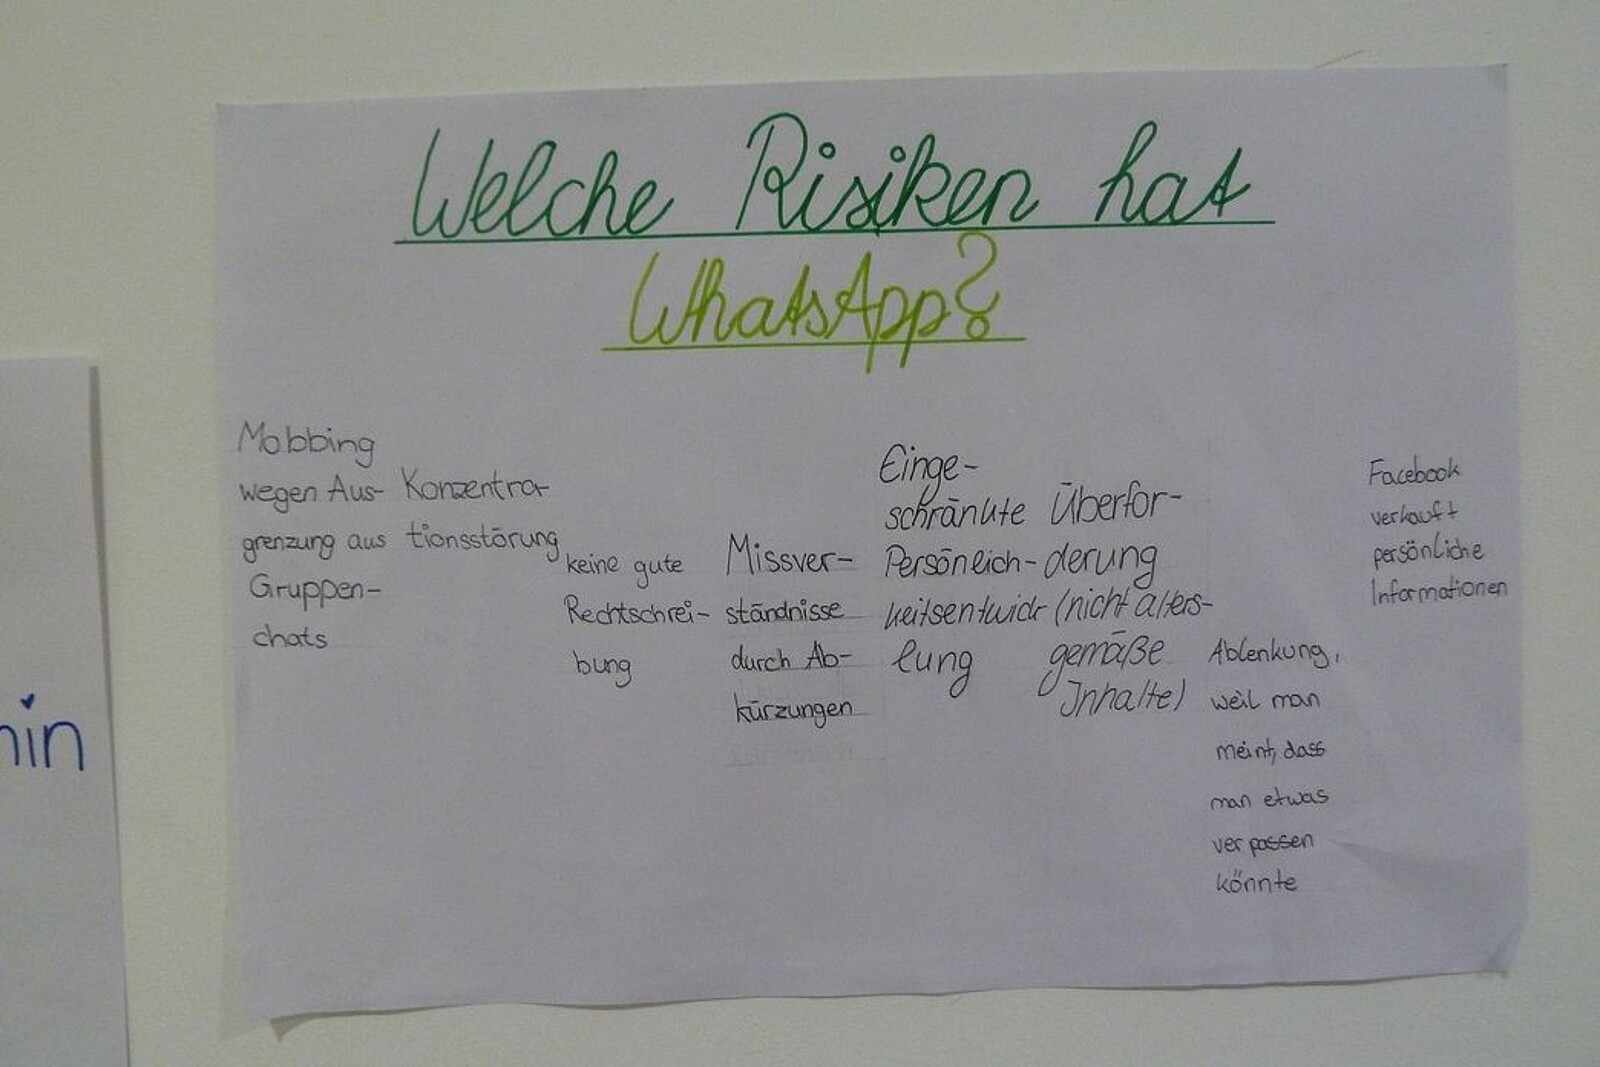 Welche Risiken hat
WhatsApp?
Mobbing
wegen Aus-
grenzung aus
Gruppen-
chats
Konzentra-
tionsstörung
keine gute
Rechtschrei-
bung
Missver-
ständnisse
durch Ab-
kürzungen
Einge-
schränkte
Persönlich-
keitsentwick-
lung
Überfor-
derung
(nicht alters-
gemäße
Inhalte)
Ablenkung,
weil man
meint, dass
man etwas
verpassen
könnte
Facebook
verkauft
persönliche
Informationen